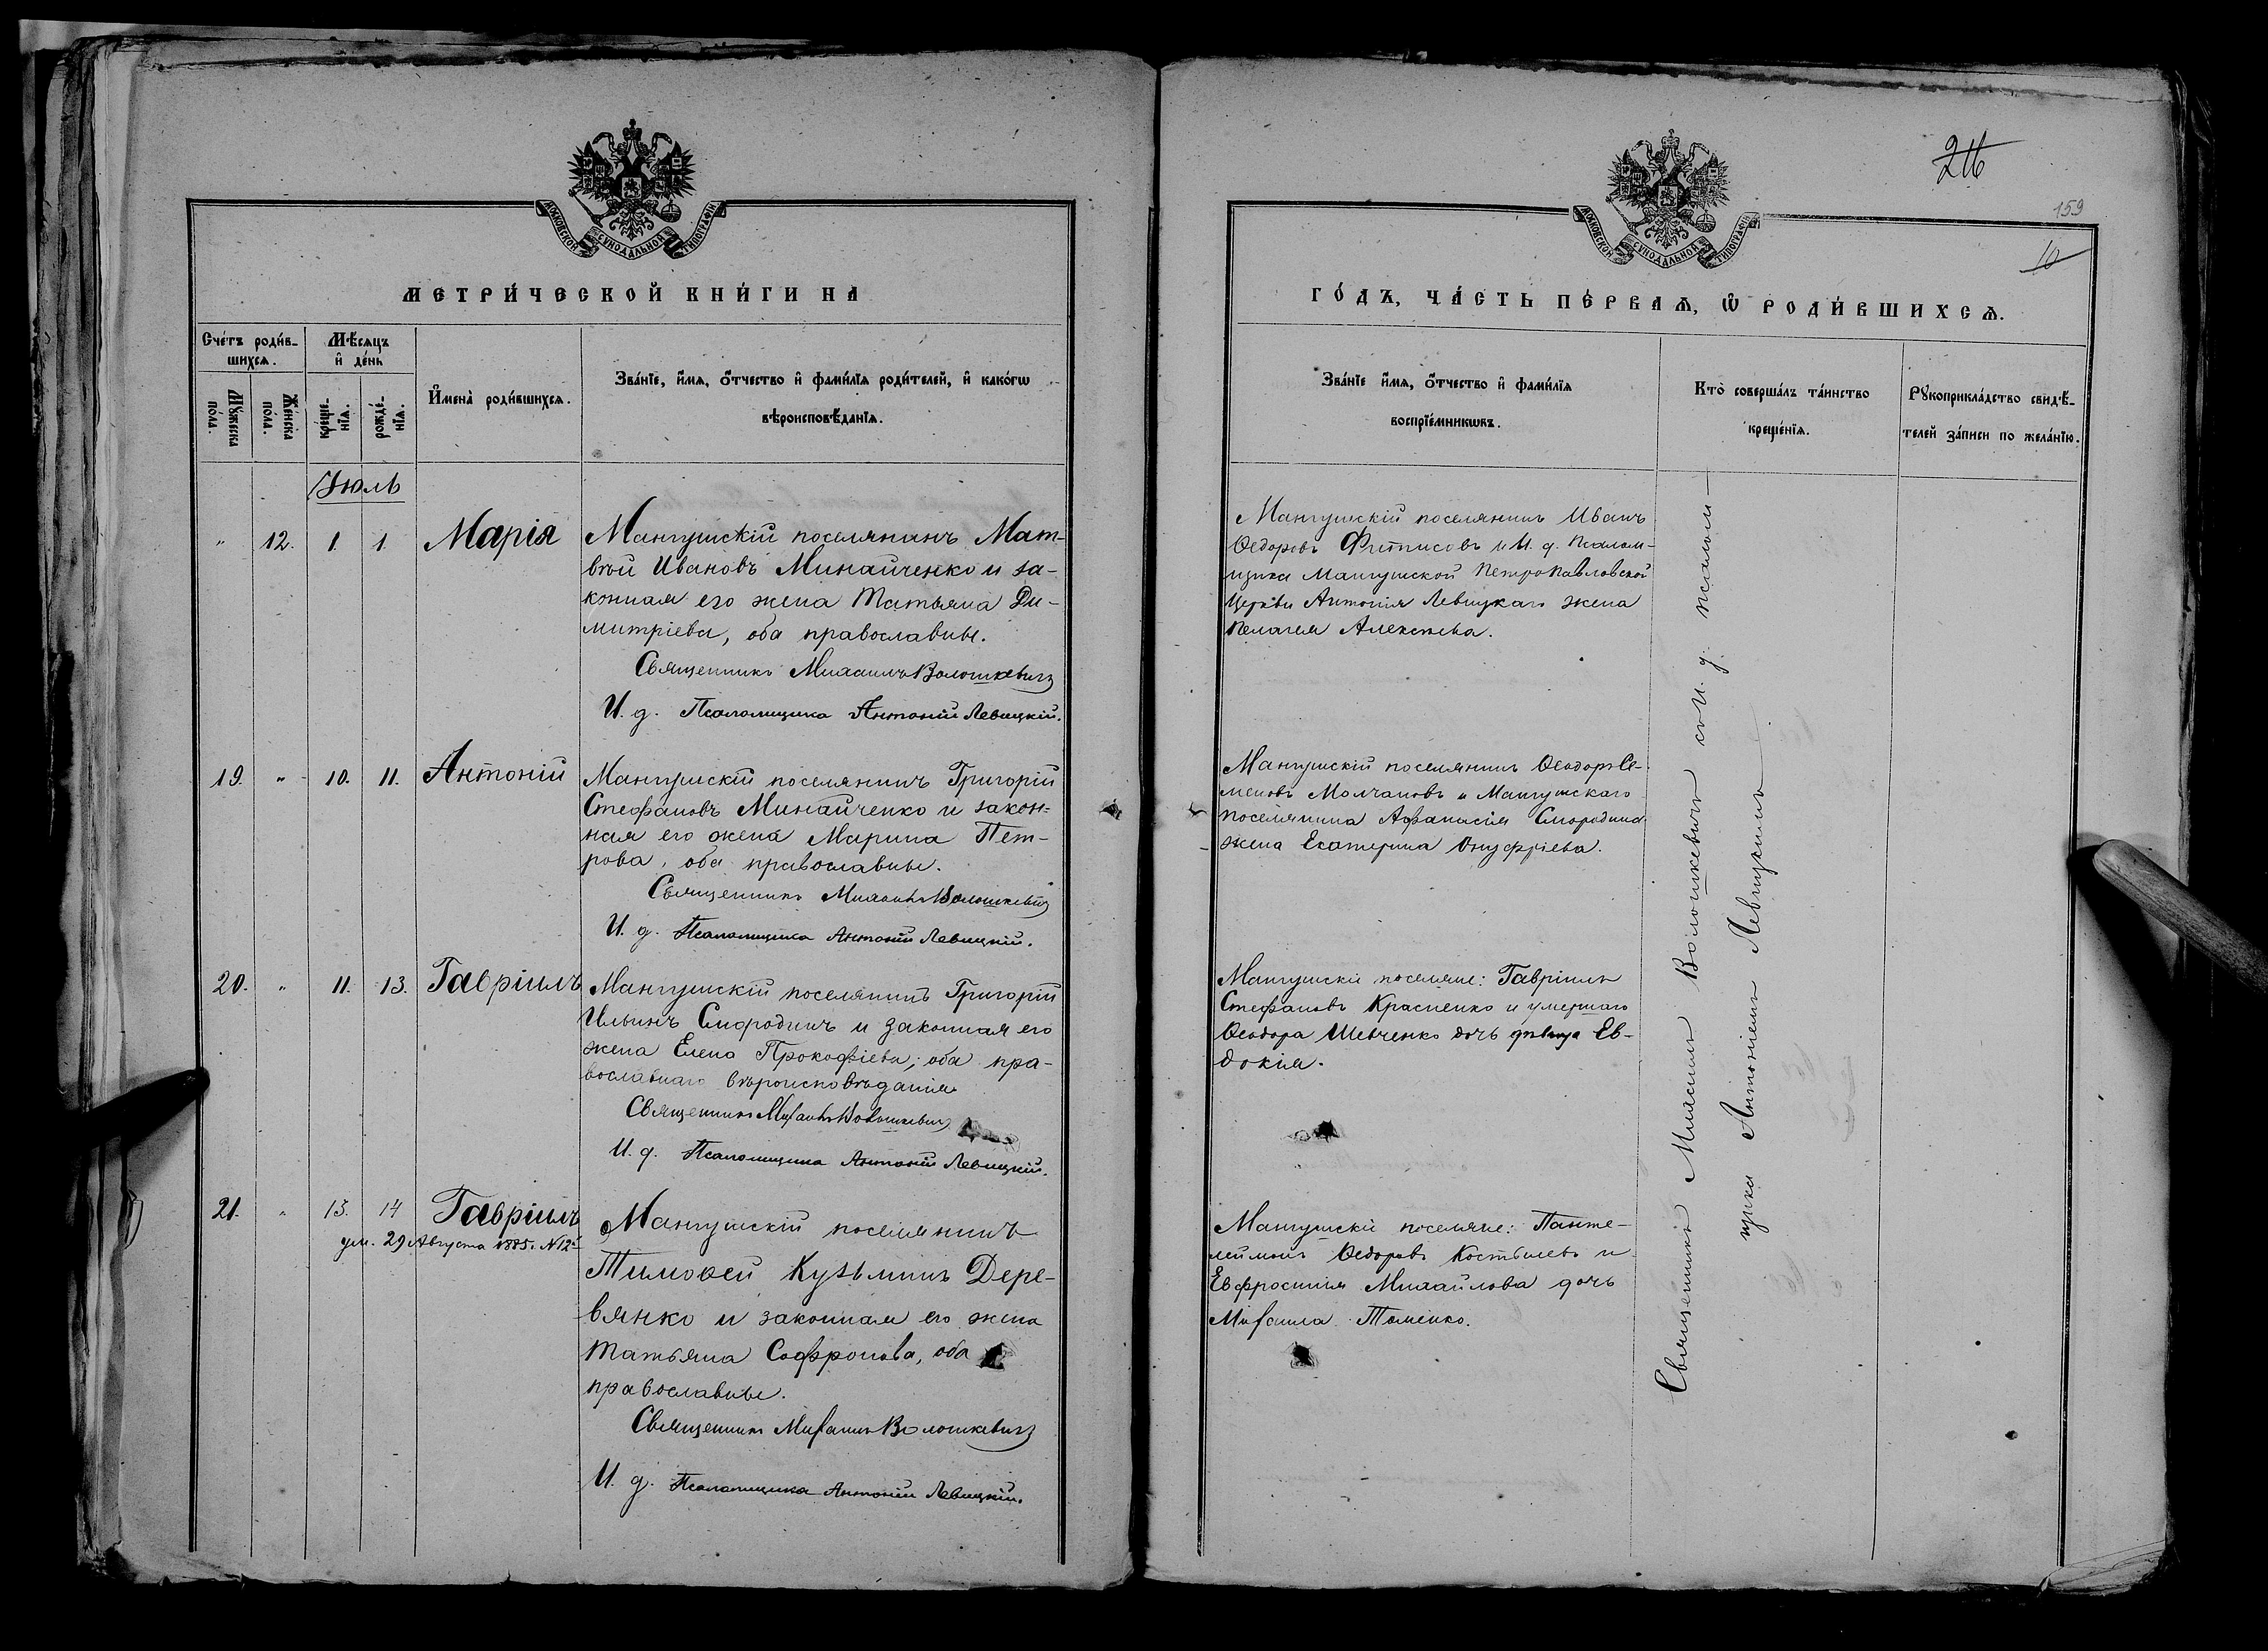 МОСКОВСКОЙ СѴНОДАЛЬНОЙ ТИПОГРАФІИ
МЕТРИ́ЧЕСКОЙ КНИ́ГИ НА
Сче́тъ роди́в-
шихсѧ.
Мѣ́сѧцъ
и҆ де́нь
Мꙋ́жеска
по́ла.
Же́нска
по́ла.
креще-
нїѧ.
рожде́-
нїѧ.
И҆мена̀ роди́вшихсѧ.
Зва́нїе, и҆́мѧ, ѻ҆́тчество и҆ фами́лїѧ роди́телей, и҆ како́гѡ
вѣроисповѣ́данїѧ.
Іюль
" 12. 1. 1. Марія
Мангушскій поселянинъ Мат-
вѣй Ивановъ Минайченко и за-
конная его жена Татьяна Ди-
митріева, оба православные.
Священникъ Михаилъ Волошкевичъ
И. д. Псаломщика Антоній Левицкій.
19. " 10. 11. Антоній
Мангушскій поселянинъ Григорій
Стефановъ Минайченко и закон-
ная его жена Марина Пет-
рова, оба православные.
Священникъ Михаилъ Волошкевичъ
И. д. Псаломщика Антоній Левицкій.
20. " 11. 13. Гавріилъ
Мангушскій поселянинъ Григорій
Ильинъ Смородинъ и законная его
жена Елена Прокофіева, оба пра-
вославнаго вѣроисповѣданія.
Священникъ Михаилъ Волошкевичъ
И. д. Псаломщика Антоній Левицкій.
21. " 13. 14 Гавріилъ
ум. 29 Августа 1885г. N 12й
Мангушскій поселянинъ
Тимоѳей Кузьминъ Дере-
вянко и законная его жена
Татьяна Софронова, оба
православные.
Священникъ Михаилъ Волошкевичъ
И. д. Псаломщика Антоній Левицкій.
26
159
10
МОСКОВСКОЙ СѴНОДАЛЬНОЙ ТИПОГРАФІИ
ГО́ДЪ, ЧА́СТЬ ПЕ́РВАѦ, Ѡ҆ РОДИ́ВШИХСѦ.
Зва́нїе и҆́мѧ, ѻ҆́тчество и҆ фами́лїѧ
воспрїе́мникѡвъ.
Кто̀ соверша́лъ та́инство
креще́нїѧ.
Рꙋкоприкла́дство свидѣ́-
телей за́писи по жела́нїю.
Мангушскій поселянинъ Иванъ
Ѳедоровъ Фитисовъ и И. д. Псалом-
щика Мангушской Петропавловской
Церкви Антонія Левицкаго жена
Пелагея Алексѣева.
Мангушскій поселянинъ Ѳеодоръ Се-
меновъ Молчановъ и Мангушскаго
поселянина Афанасія Смородина
жена Екатерина Онуфріева.
Мангушскіе поселяне: Гавріилъ
Стефановъ Красненко и умершаго
Ѳеодора Шевченко дочь дѣвица Ев-
докія.
Мангушскіе поселяне: Панте-
леймонъ Ѳедоровъ Костылевъ и
Евфросинія Михайлова дочь
Михаила Томенко.
Священникъ Михаилъ Волошкевичъ съ И. д. псалом-
щика Антоніемъ Левицкимъ